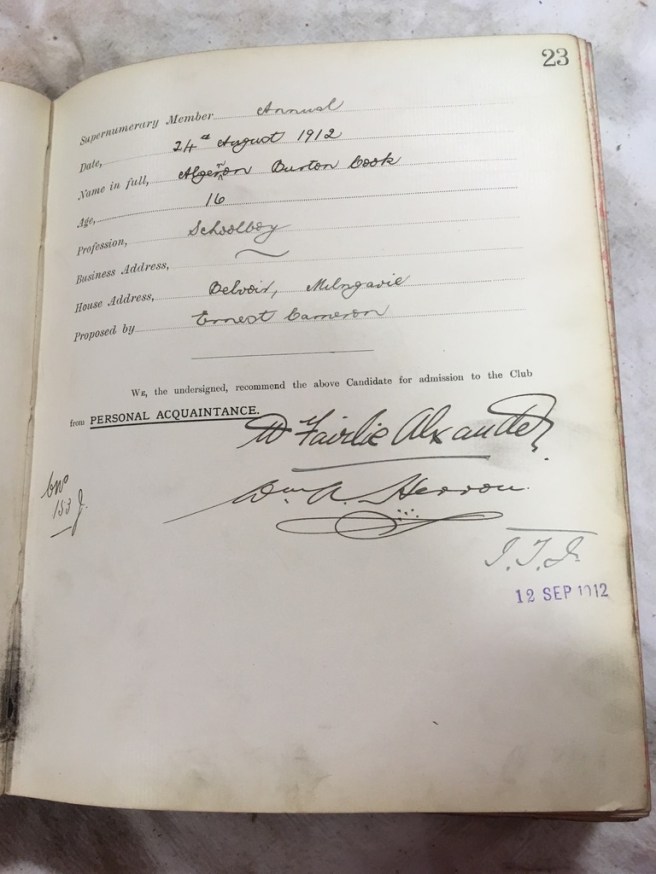 23
Supernumerary Member Annual
Date, 24th August 1912
Name in full, Algernon Burton Cook
Age, 16
Profession, Schoolboy
Business Address,
House Address, Belvoir, Milngavie
Proposed by Ernest Cameron
WE, the undersigned, recommend the above Candidate for admission to the Club
from PERSONAL ACQUAINTANCE.
W Fairlie Alexander
Wm A. Herron.
153
12 SEP 1912